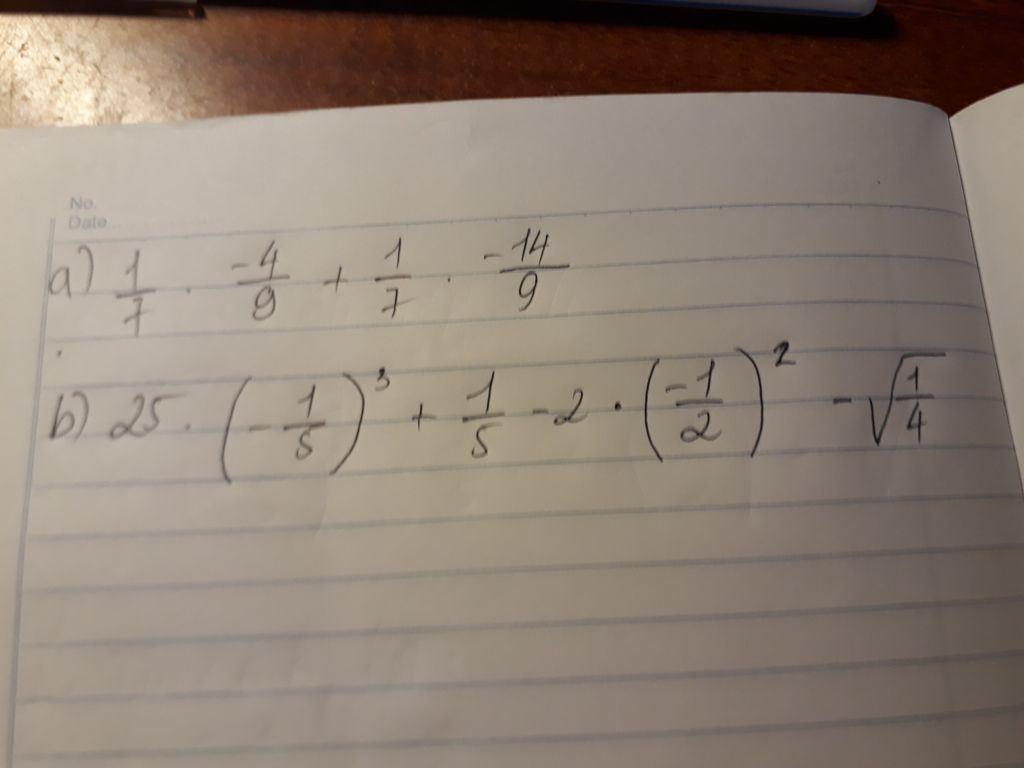 No.
Date
a) 1/7 . -4/9 + 1/7 . -14/9
b) 25 . (-1/5)³ + 1/5 - 2 . (-1/2)² - √(1/4)